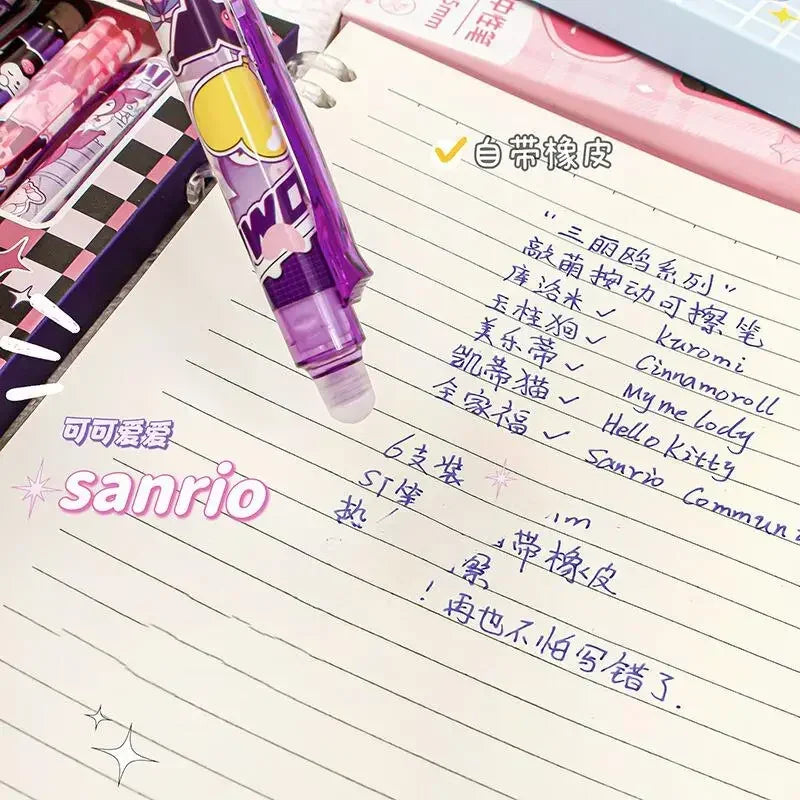 5mm
中性笔
自带橡皮
"三丽鸥系列"
敲萌按动可擦笔
库洛米 ✓ Kuromi
玉桂狗 ✓ Cinnamoroll
美乐蒂 ✓ My melody
凯蒂猫 ✓ Hello Kitty
全家福 ✓ Sanrio Communi
可可爱爱
sanrio
6支装
ST
热
带橡皮
! 再也不怕写错了.